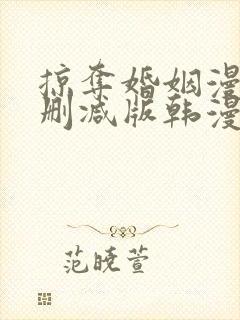 掠夺婚姻漫
删减版韩漫
范晓萱